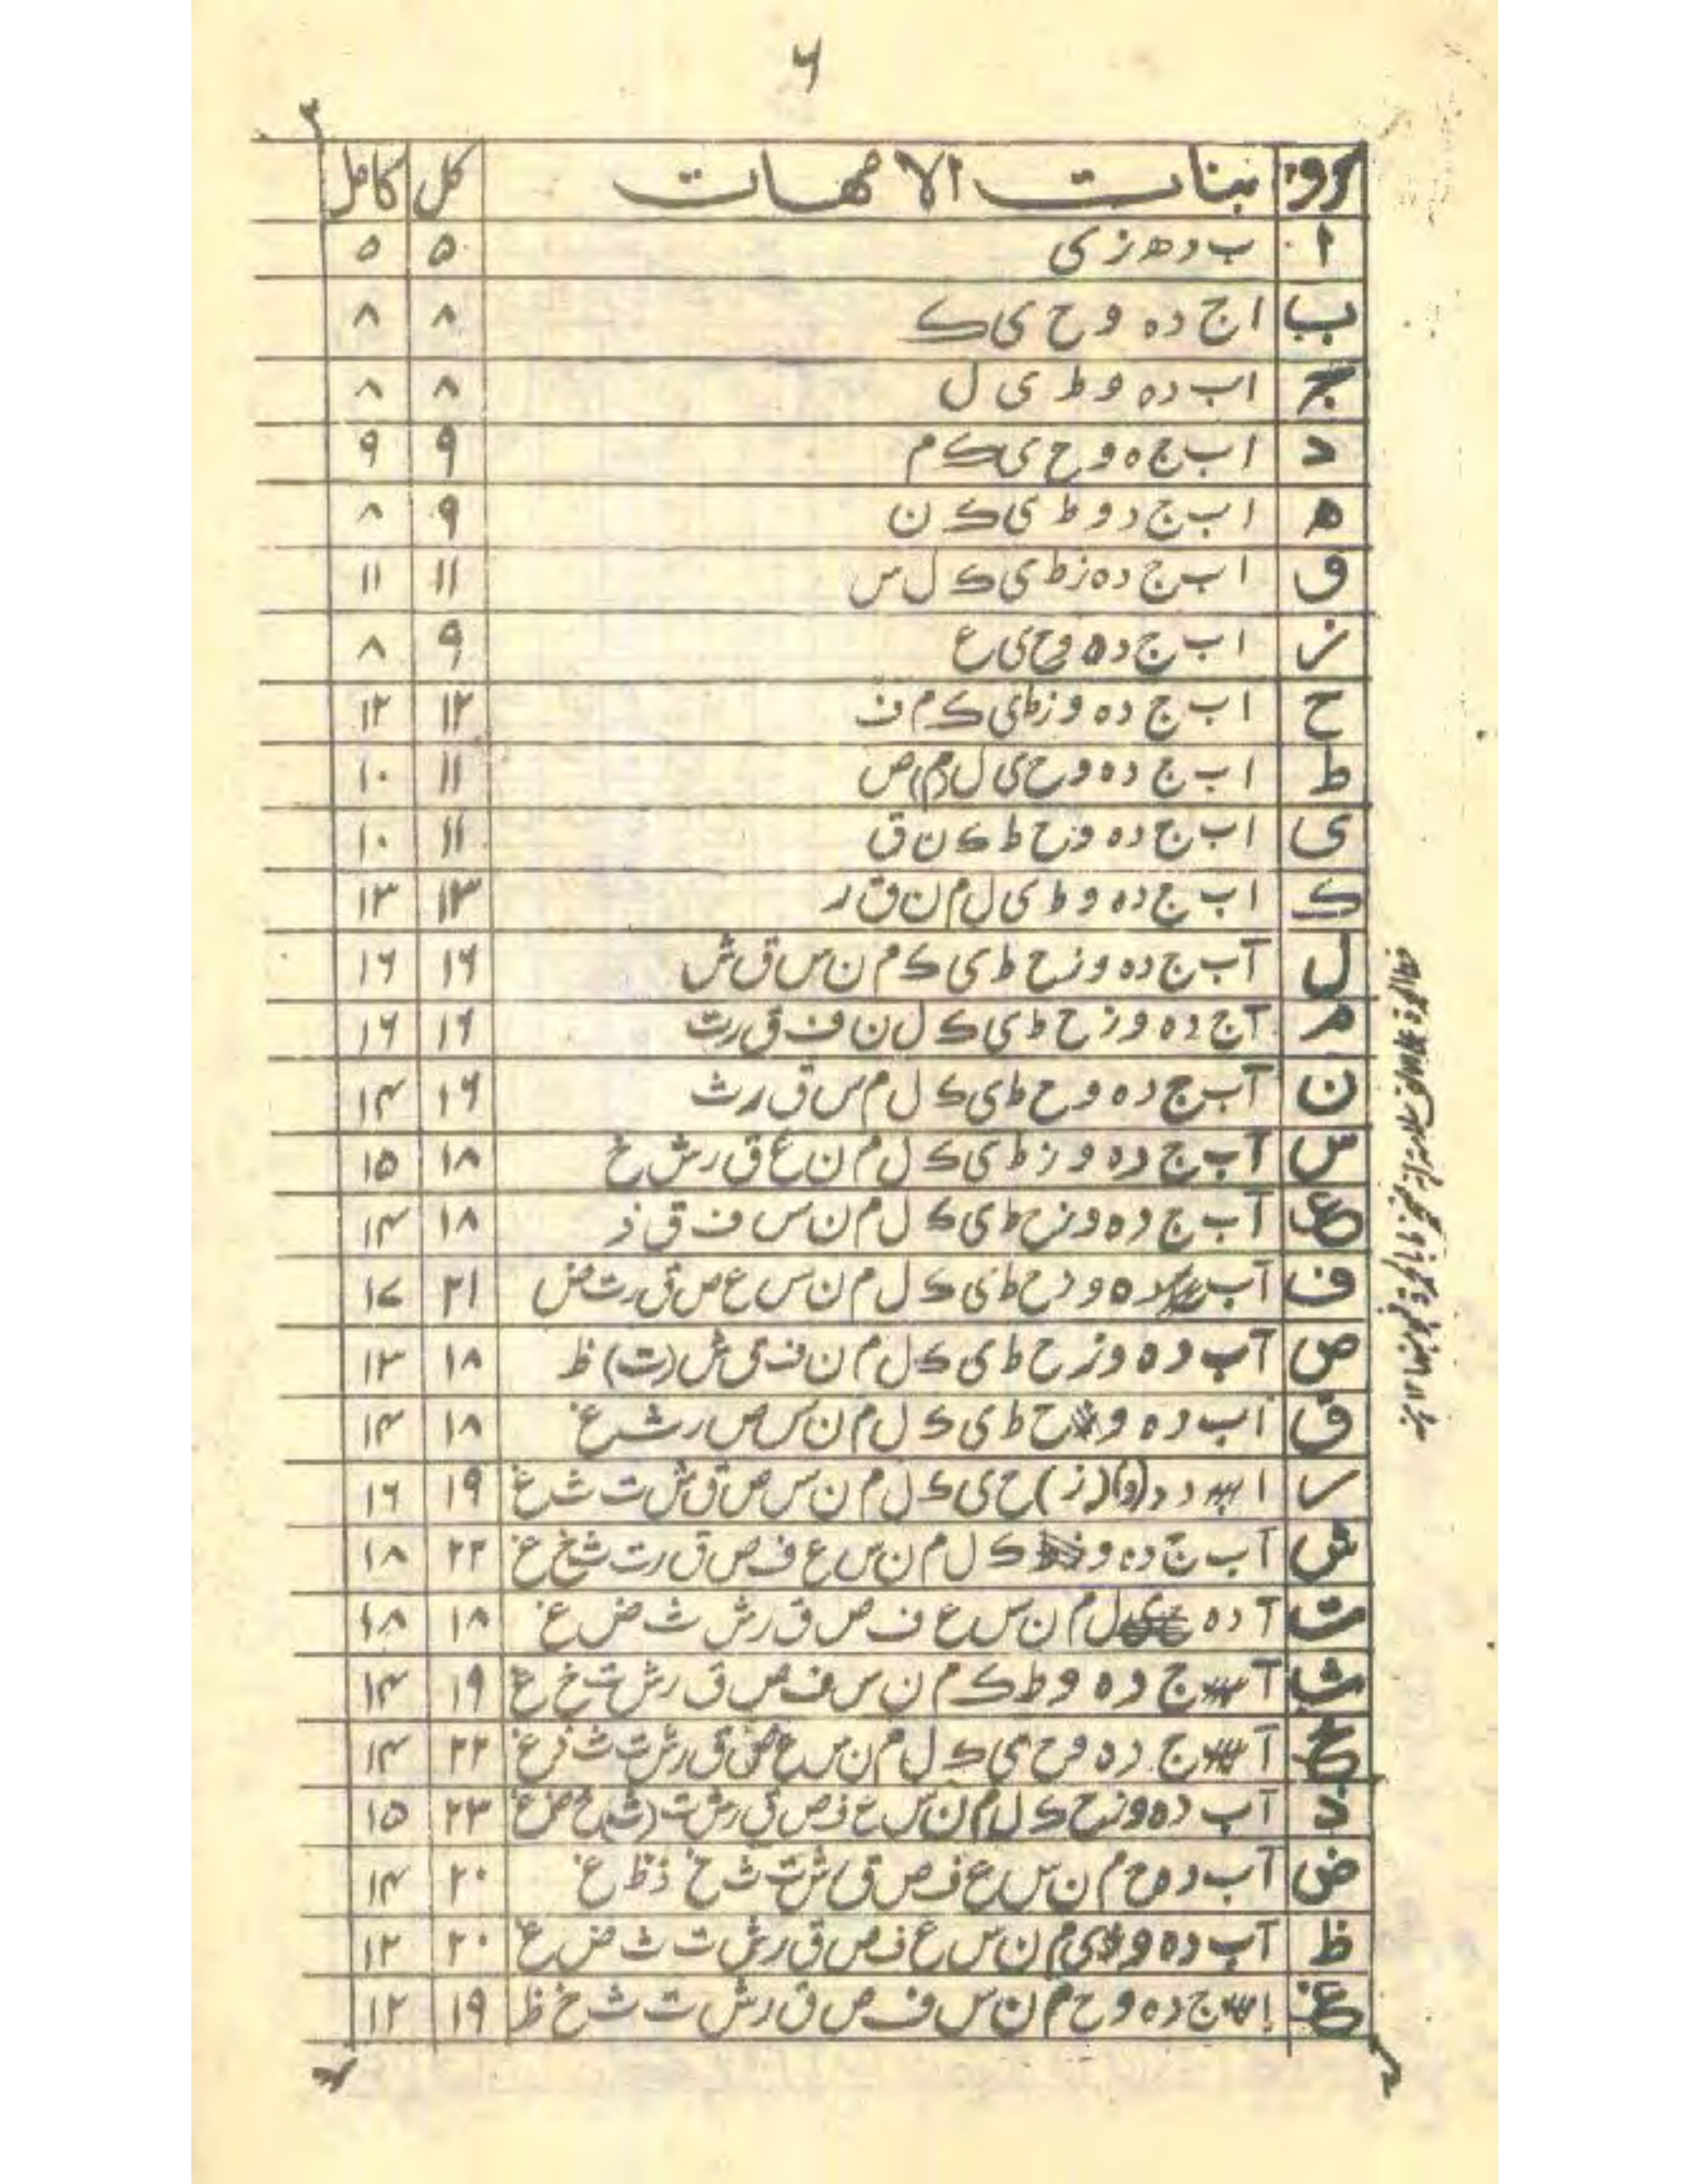 ۶
حروف بنات الامهات کل کامل
ا ب د ھ ز ی ۵ ۵
ب ا ج د ه و ح ی ک ۸ ۸
ج ا ب د ه و ط ی ل ۸ ۸
د ا ب ج ه و ح ی ک م ۹ ۹
ه ا ب ج د و ط ی ک ن ۹ ۸
و ا ب ج د ه ز ط ی ک ل س ۱۱ ۱۱
ز ا ب ج د ه و ح ی ع ۹ ۸
ح ا ب ج د ه و ز ط ی ک م ف ۱۲ ۱۲
ط ا ب ج د ه و ح ی ل (م) ص ۱۱ ۱۰
ی ا ب ج د ه و ح ط ک ن ق ۱۱ ۱۰
ک ا ب ج د ه و ط ی ل م ن ق ر ۱۳ ۱۳
ل آ ب ج د ه و ز ح ط ی ک م ن س ق ش ۱۶ ۱۶
م آ ج د ه و ز ح ط ی ک ل ن ف ق ر ت ۱۶ ۱۶
ن آ ب ج د ه و ح ط ی ک ل م س ق ر ث ۱۶ ۱۴
س آ ب ج د ه و ز ط ی ک ل م ن ع ق ر ش خ ۱۸ ۱۵
ع آ ب ج د ه و ز ح ط ی ک ل م ن س ف ق ذ ۱۸ ۱۴
ف آ ب د ه و ز ح ط ی ک ل م ن س ع ص ق ر ت ض ۲۱ ۱۷
ص آ ب د ه و ز ح ط ی ک ل م ن ف ق ش (ت) ظ ۱۸ ۱۳
ق آ ب د ه و ح ط ی ک ل م ن س ص ر ش غ ۱۸ ۱۴
ر ا د (و) (ز) ح ی ک ل م ن س ص ق ش ت ث غ ۱۹ ۱۶
ش آ ب ج د ه و ک ل م ن س ع ف ص ق ر ت ث خ غ ۲۲ ۱۸
ت آ د ه ل م ن س ع ف ص ق ر ش ث ض غ ۱۸ ۱۸
ث آ ج د ه و ط ک م ن س ف ص ق ر ش ت خ غ ۱۹ ۱۴
خ آ ج د ه و ح ی ک ل م ن س ع ق ر ش ت ث غ ۲۲ ۱۴
ذ آ ب د ه و ز ح ک ل م ن س ع ف ص ق ر ش ت (ث) خ ض غ ۲۳ ۱۵
ض آ ب د ه ح م ن س ع ف ص ق ر ش ت ث خ ذ ظ غ ۲۰ ۱۴
ظ آ ب د ه و ی م ن س ع ف ص ق ر ش ت ث ض غ ۲۰ ۱۲
غ ا ج د ه و ح م ن س ف ص ق ر ش ت ث خ ظ ۱۹ ۱۲